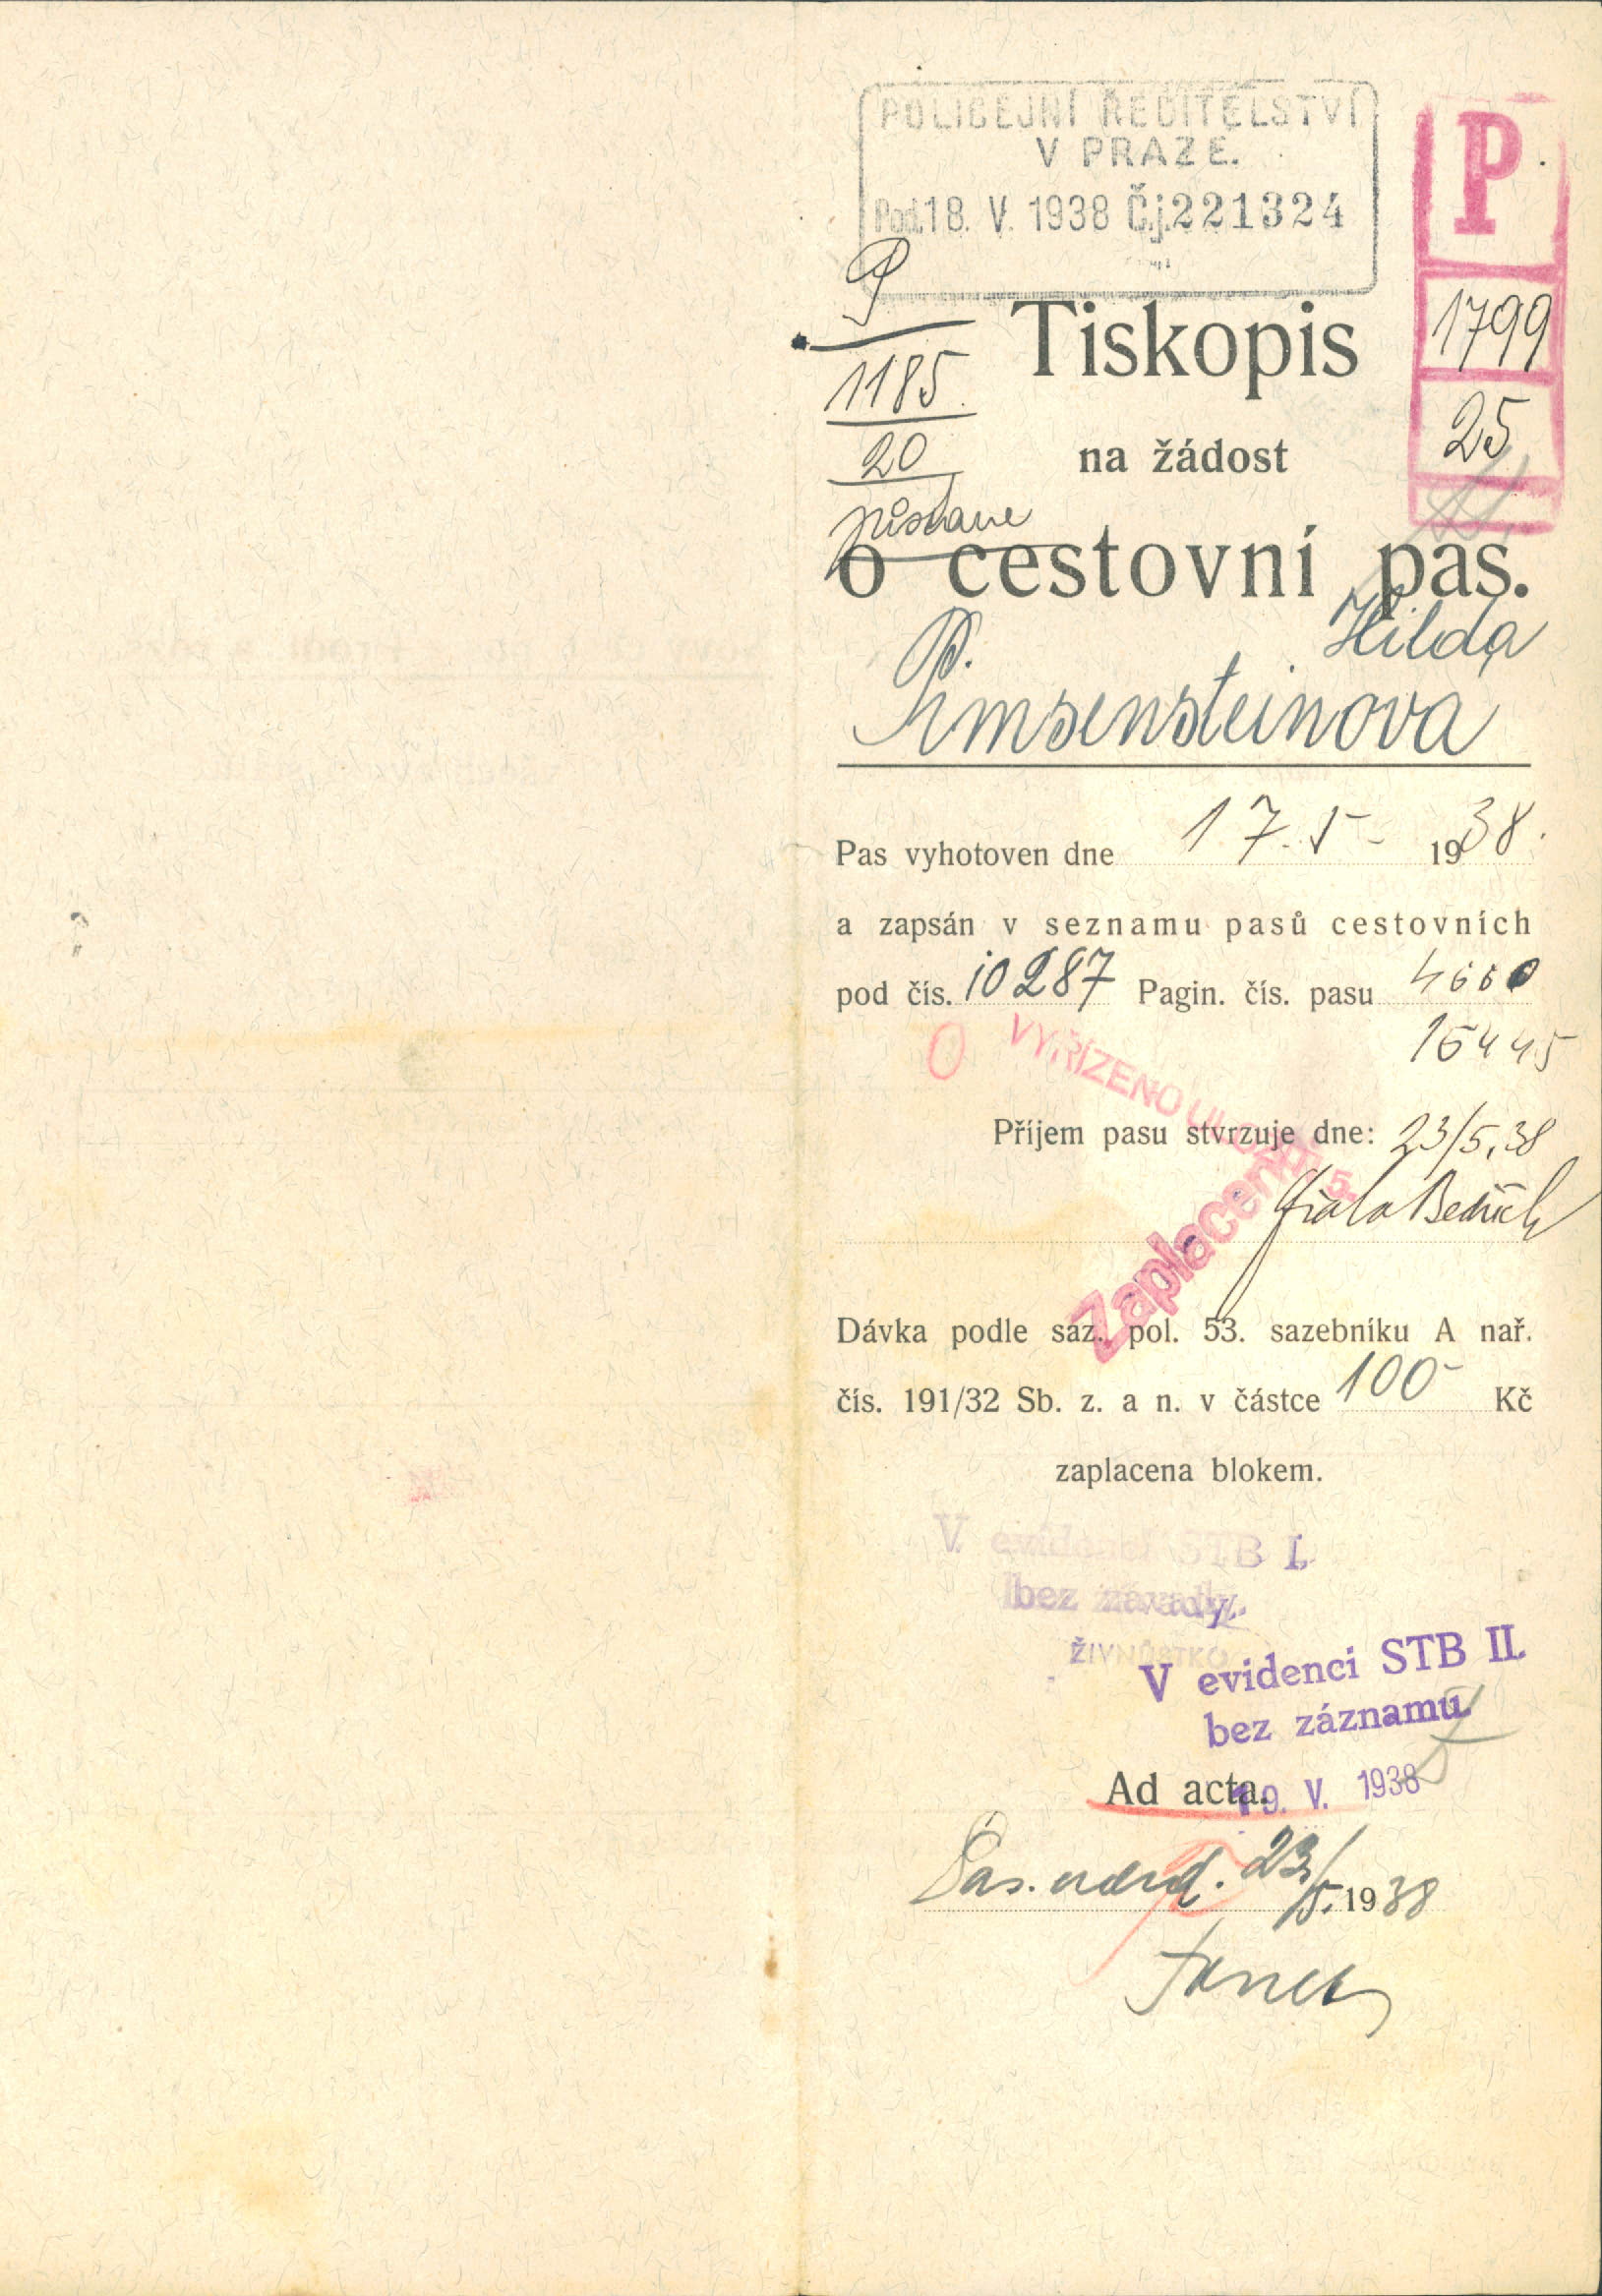 POLICEJNÍ ŘEDITELSTVÍ
V PRAZE.
Pod. 18. V. 1938 Č.j. 221324
P
1799
25
P
1185
20
Tiskopis
na žádost
o cestovní pas.
Hilda
Pimsensteinova
Pas vyhotoven dne 17.5- 1938.
a zapsán v seznamu pasů cestovních
pod čís. 10287 Pagin. čís. pasu 4660
16445
VYŘÍZENO
Příjem pasu stvrzuje dne: 23/5.38
Zaplaceno
Bedřich
Dávka podle saz. pol. 53. sazebníku A nař.
čís. 191/32 Sb. z. a n. v částce 100- Kč
zaplacena blokem.
V evidenci STB I.
bez závady.
V evidenci STB II.
bez záznamu.
Ad acta.
19. V. 1938
23/5. 1938